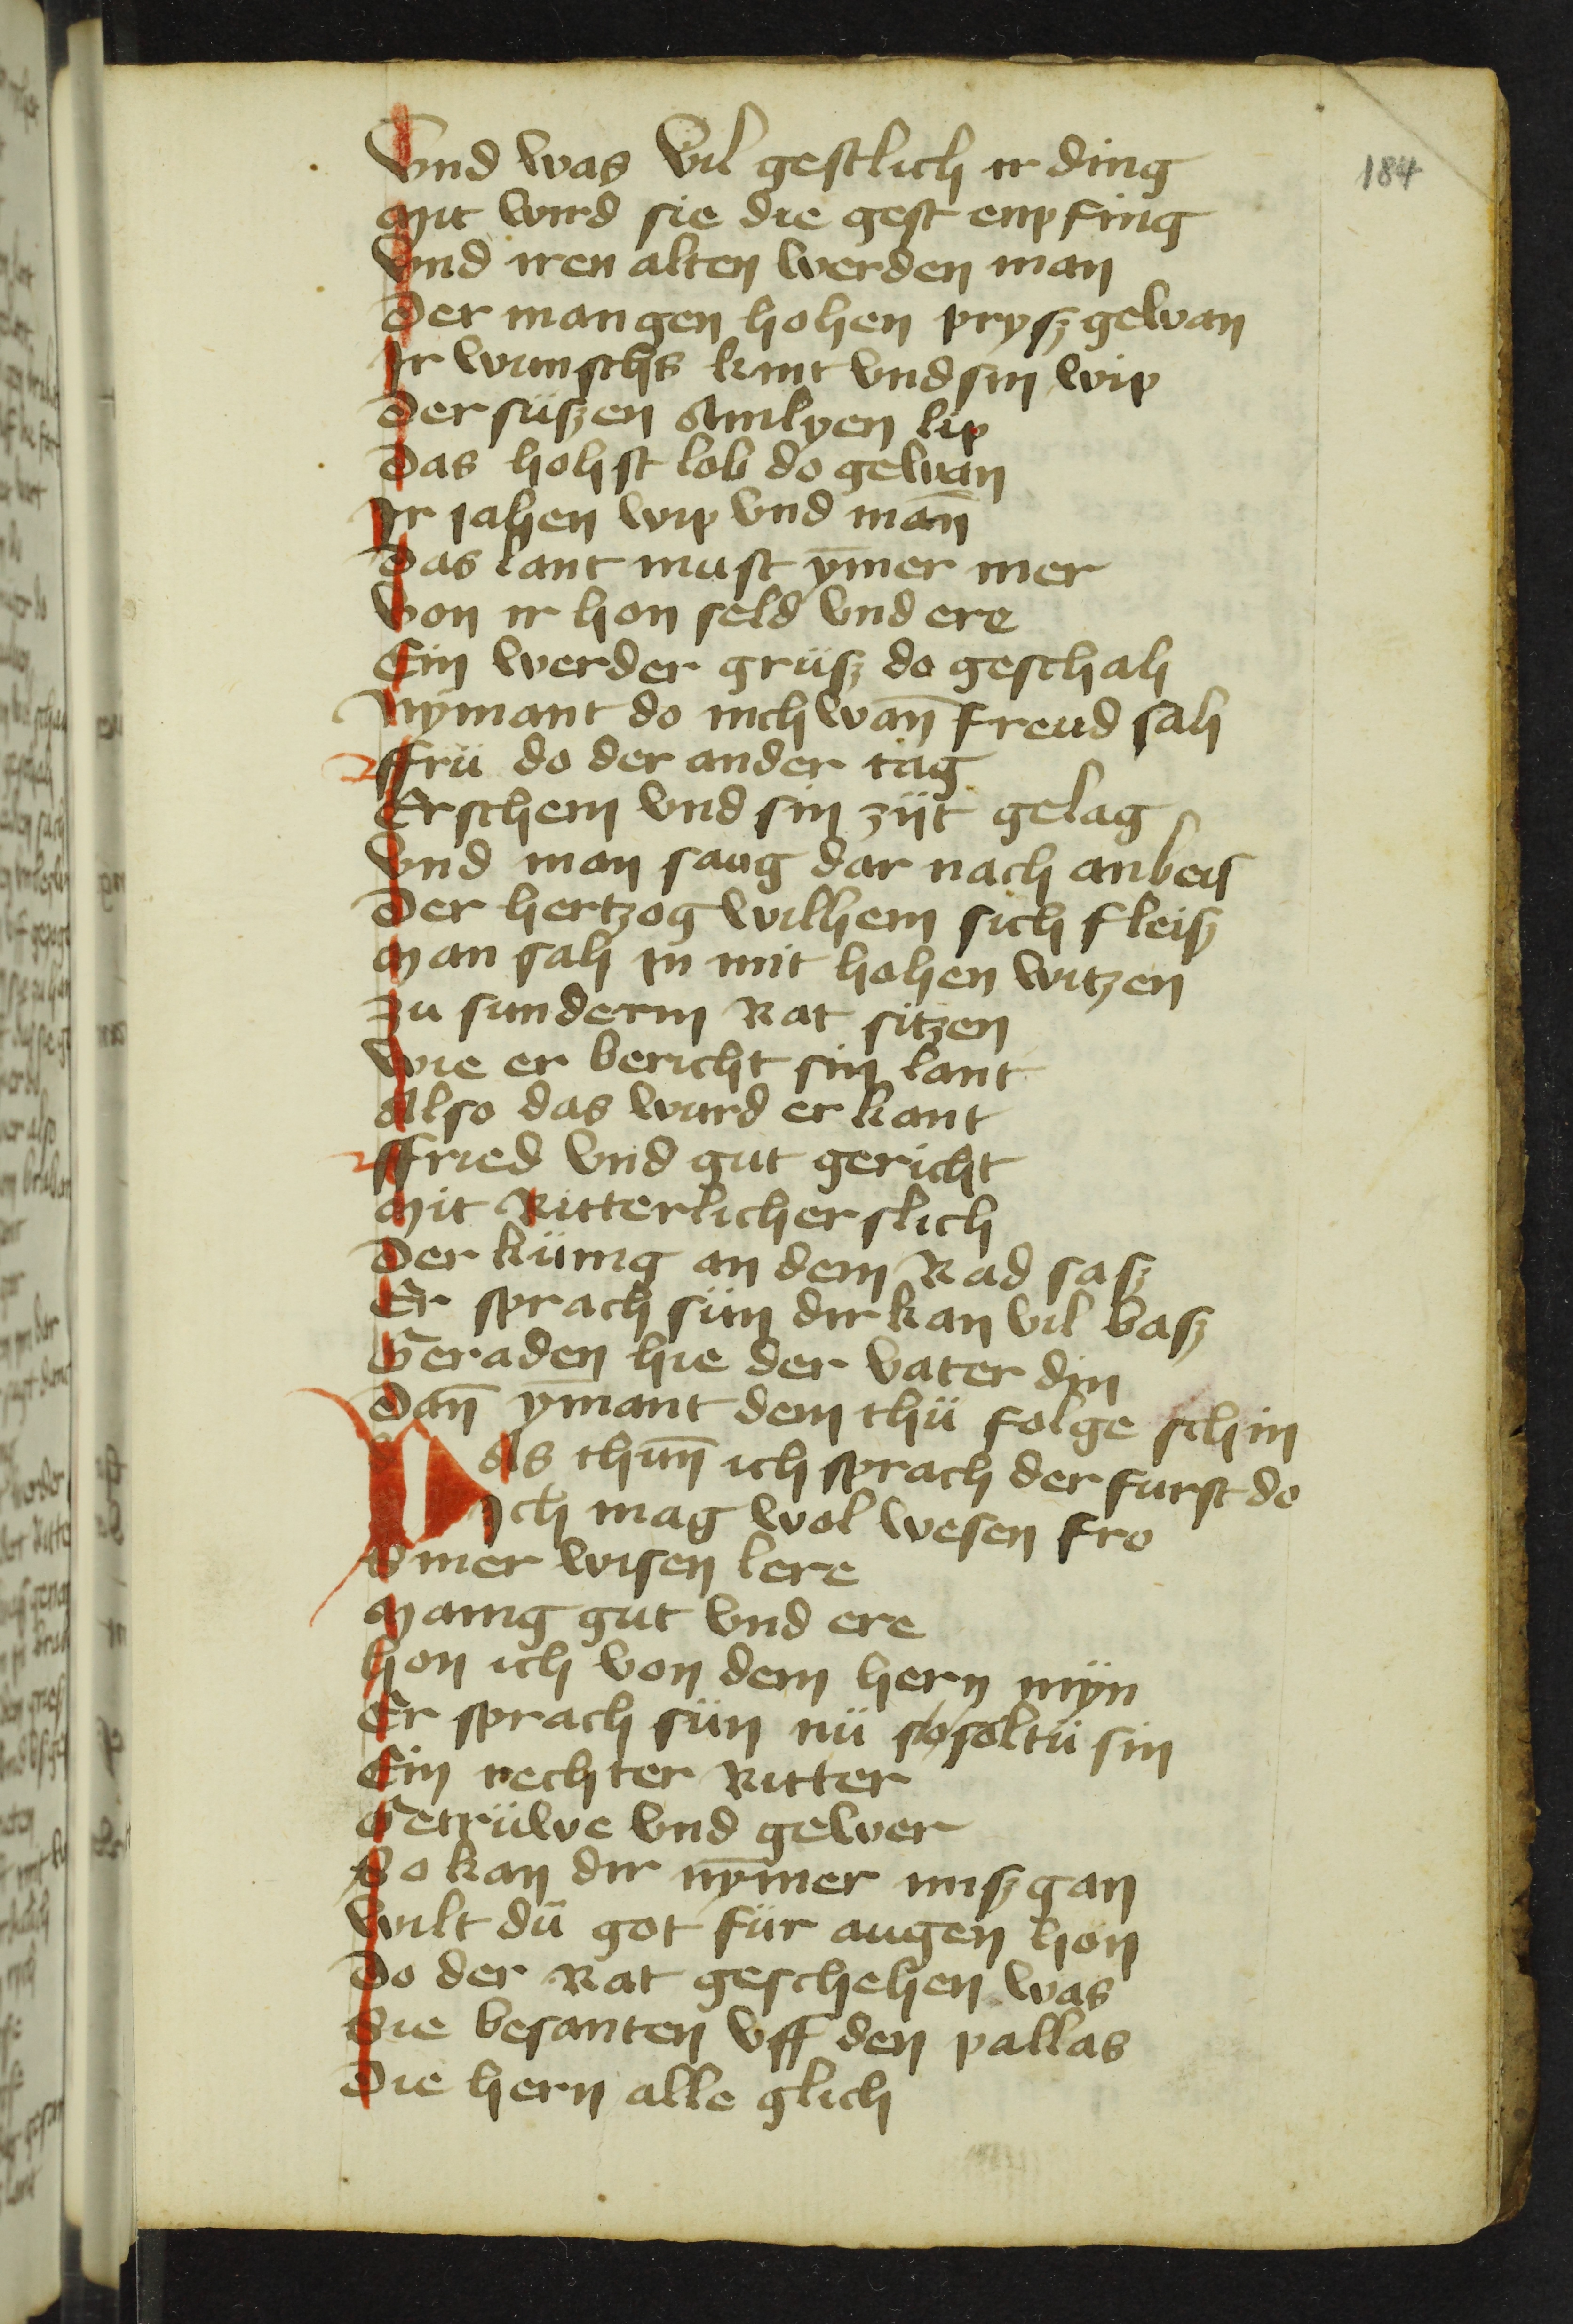 184
Vnd was vil gestlich ir ding
Mit wird sie die gest enpfing
Vnd iren alten werden man
Der mangen hohen prysz gewan
Ir wunschs kint vnd sin wip
Der süszen Amlyen lip
Das hohst lob do gewan
Ir jahen wip vnd man̄
Das lant must ȳmer mer
Von ir hon seld vnd ere
Ein werder grüsz do geschah
Nymant do nich wan̄ freud sah
Ffrü do der ander tag
Erschein vnd sin zijt gelag
Vnd man sang dar nach anbeis
Der hertzog wilhem sich fleisz
Man sah in mit hohen witzen
Zu sunderm Rat sitzen
Wie er bericht sin lant
Also das ward erkant
Ffried vnd gut gericht
Mit Ritterlicher slich
Der künig an dem Rad sasz
Er sprach sün dir kan vil basz
Geraden hie der vater din
Dan̄ ȳmant dem thü folge schin
Das thun̄ ich sprach der furst do
Ich mag wol wesen fro
Vwer wisen lere
Manig gut vnd ere
Hon ich von dem hern myn
Er sprach sün nü so soltü sin
Ein rechter Ritter
Getrüwe vnd gewer
So kan dir nȳmer miszgan
Wilt dü got für augen hon
Do der Rat geschehen was
Sie besanten vff den pallas
Die hern alle glich